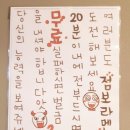 여러분도 점보라멘
도전해보세요
20분이내에전부드시면
무료 실패하면벌금
을내야하니다만
당신의능력을보여주세